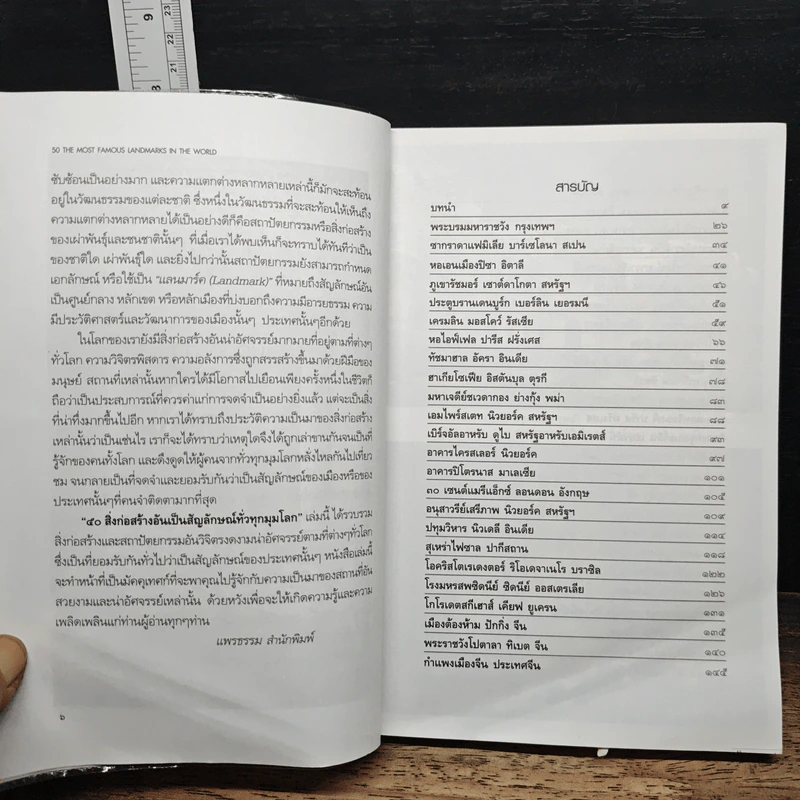 9
23
22
8
21
50 THE MOST FAMOUS LANDMARKS IN THE WORLD
ซับซ้อนเป็นอย่างมาก และความแตกต่างหลากหลายเหล่านี้ก็มักจะสะท้อน
อยู่ในวัฒนธรรมของแต่ละชาติ ซึ่งหนึ่งในวัฒนธรรมที่จะสะท้อนให้เห็นถึง
ความแตกต่างหลากหลายได้เป็นอย่างดีก็คือสถาปัตยกรรมหรือสิ่งก่อสร้าง
ของเผ่าพันธุ์และชนชาตินั้นๆ ที่เมื่อเราได้พบเห็นก็จะทราบได้ทันทีว่าเป็น
ของชาติใด เผ่าพันธุ์ใด และยิ่งไปกว่านั้นสถาปัตยกรรมยังสามารถกำหนด
เอกลักษณ์ หรือใช้เป็น “แลนมาร์ค (Landmark)” ที่หมายถึงสัญลักษณ์อัน
เป็นศูนย์กลาง หลักเขต หรือหลักเมืองที่บ่งบอกถึงความมีอารยธรรม ความ
มีประวัติศาสตร์และวัฒนาการของเมืองนั้นๆ ประเทศนั้นๆอีกด้วย
ในโลกของเรายังมีสิ่งก่อสร้างอันน่าอัศจรรย์มากมายที่อยู่ตามที่ต่างๆ
ทั่วโลก ความวิจิตรพิสดาร ความอลังการซึ่งถูกสรรสร้างขึ้นมาด้วยฝีมือของ
มนุษย์ สถานที่เหล่านั้นหากใครได้มีโอกาสไปเยือนเพียงครั้งหนึ่งในชีวิตก็
ถือว่าเป็นประสบการณ์ที่ควรค่าแก่การจดจำเป็นอย่างยิ่งแล้ว แต่จะเป็นสิ่ง
ที่น่าทึ่งมากขึ้นไปอีก หากเราได้ทราบถึงประวัติความเป็นมาของสิ่งก่อสร้าง
เหล่านั้นว่าเป็นเช่นไร เราก็จะได้ทราบว่าเหตุใดจึงได้ถูกเล่าขานกันจนเป็นที่
รู้จักของคนทั้งโลก และดึงดูดให้ผู้คนจากทั่วทุกมุมโลกหลั่งไหลกันไปเที่ยว
ชม จนกลายเป็นที่จดจำและยอมรับกันว่าเป็นสัญลักษณ์ของเมืองหรือของ
ประเทศนั้นๆที่คนจำติดตามากที่สุด
“๕๐ สิ่งก่อสร้างอันเป็นสัญลักษณ์ทั่วทุกมุมโลก” เล่มนี้ ได้รวบรวม
สิ่งก่อสร้างและสถาปัตยกรรมอันวิจิตรงดงามน่าอัศจรรย์ตามที่ต่างๆทั่วโลก
ซึ่งเป็นที่ยอมรับกันทั่วไปว่าเป็นสัญลักษณ์ของประเทศนั้นๆ หนังสือเล่มนี้
จะทำหน้าที่เป็นมัคคุเทศก์ที่จะพาคุณไปรู้จักกับความเป็นมาของสถานที่อัน
สวยงามและน่าอัศจรรย์เหล่านั้น ด้วยหวังเพื่อจะให้เกิดความรู้และความ
เพลิดเพลินแก่ท่านผู้อ่านทุกๆท่าน
แพรธรรม สำนักพิมพ์
๖
สารบัญ
บทนำ ๙
พระบรมมหาราชวัง กรุงเทพฯ ๒๖
ซากราดาแฟมิเลีย บาร์เซโลนา สเปน ๓๔
หอเอนเมืองปิซา อิตาลี ๔๑
ภูเขารัชมอร์ เซาต์ดาโกตา สหรัฐฯ ๔๖
ประตูบรานเดนบูร์ก เบอร์ลิน เยอรมนี ๕๑
เครมลิน มอสโคว์ รัสเซีย ๕๙
หอไอฟ์เฟล ปารีส ฝรั่งเศส ๖๖
ทัชมาฮาล อัครา อินเดีย ๗๑
ฮาเกียโซเฟีย อิสตันบุล ตุรกี ๗๘
มหาเจดีย์ชเวดากอง ย่างกุ้ง พม่า ๘๓
เอมไพร์สเตท นิวยอร์ค สหรัฐฯ ๘๘
เบิร์จอัลอาหรับ ดูไบ สหรัฐอาหรับเอมิเรตส์ ๙๓
อาคารไครสเลอร์ นิวยอร์ค ๙๗
อาคารปิโตรนาส มาเลเซีย ๑๐๑
๓๐ เซนต์แมรีแอ็กซ์ ลอนดอน อังกฤษ ๑๐๕
อนุสาวรีย์เสรีภาพ นิวยอร์ค สหรัฐฯ ๑๐๙
ปทุมวิหาร นิวเดลี อินเดีย ๑๑๔
สุเหร่าไฟซาล ปากีสถาน ๑๑๘
โอคริสโตเรเดงตอร์ ริโอเดจาเนโร บราซิล ๑๒๒
โรงมหรสพซิดนีย์ ซิดนีย์ ออสเตรเลีย ๑๒๖
โกโรเดตสกีเฮาส์ เคียฟ ยูเครน ๑๓๑
เมืองต้องห้าม ปักกิ่ง จีน ๑๓๕
พระราชวังโปตาลา ทิเบต จีน ๑๔๐
กำแพงเมืองจีน ประเทศจีน ๑๔๕